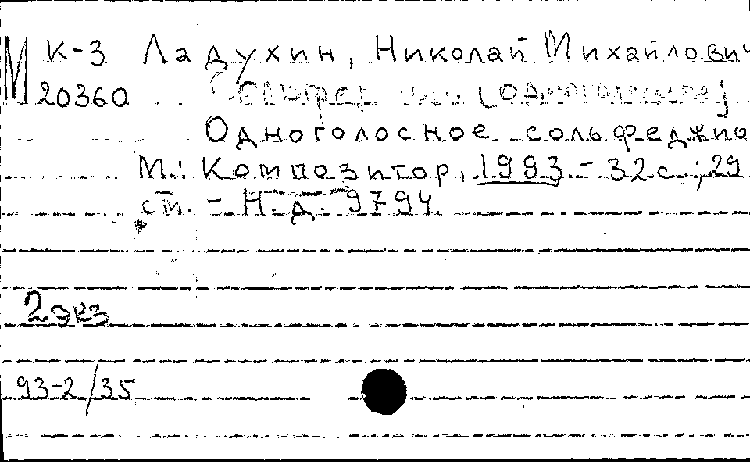 М К-3 Ладухин, Николай Михайлович
20360
Одноголосное сольфеджио
М.: Композитор, 1993 - 32 с.; 29
см. - Н.д. 9794
2 экз
93-2/35